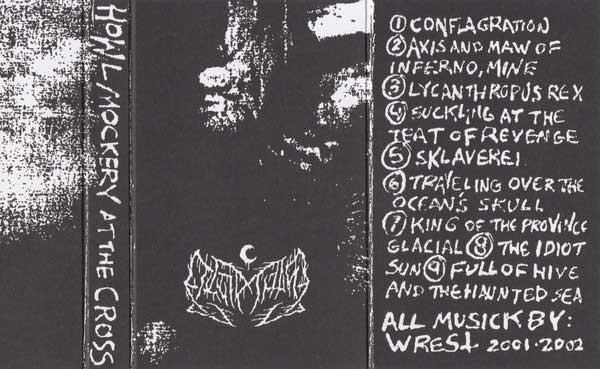 HOWL MOCKERY AT THE CROSS
① CONFLAGRATION
② AXIS AND MAW OF
INFERNO, MINE
③ LYCANTHROPUS REX
④ SUCKLING AT THE
TEAT OF REVENGE
⑤ SKLAVEREI
⑥ TRAVELING OVER THE
OCEANS SKULL
⑦ KING OF THE PROVINCE
GLACIAL ⑧ THE IDIOT
SUN ⑨ FULL OF HIVE
AND THE HAUNTED SEA
ALL MUSICK BY:
WREST 2001·2002